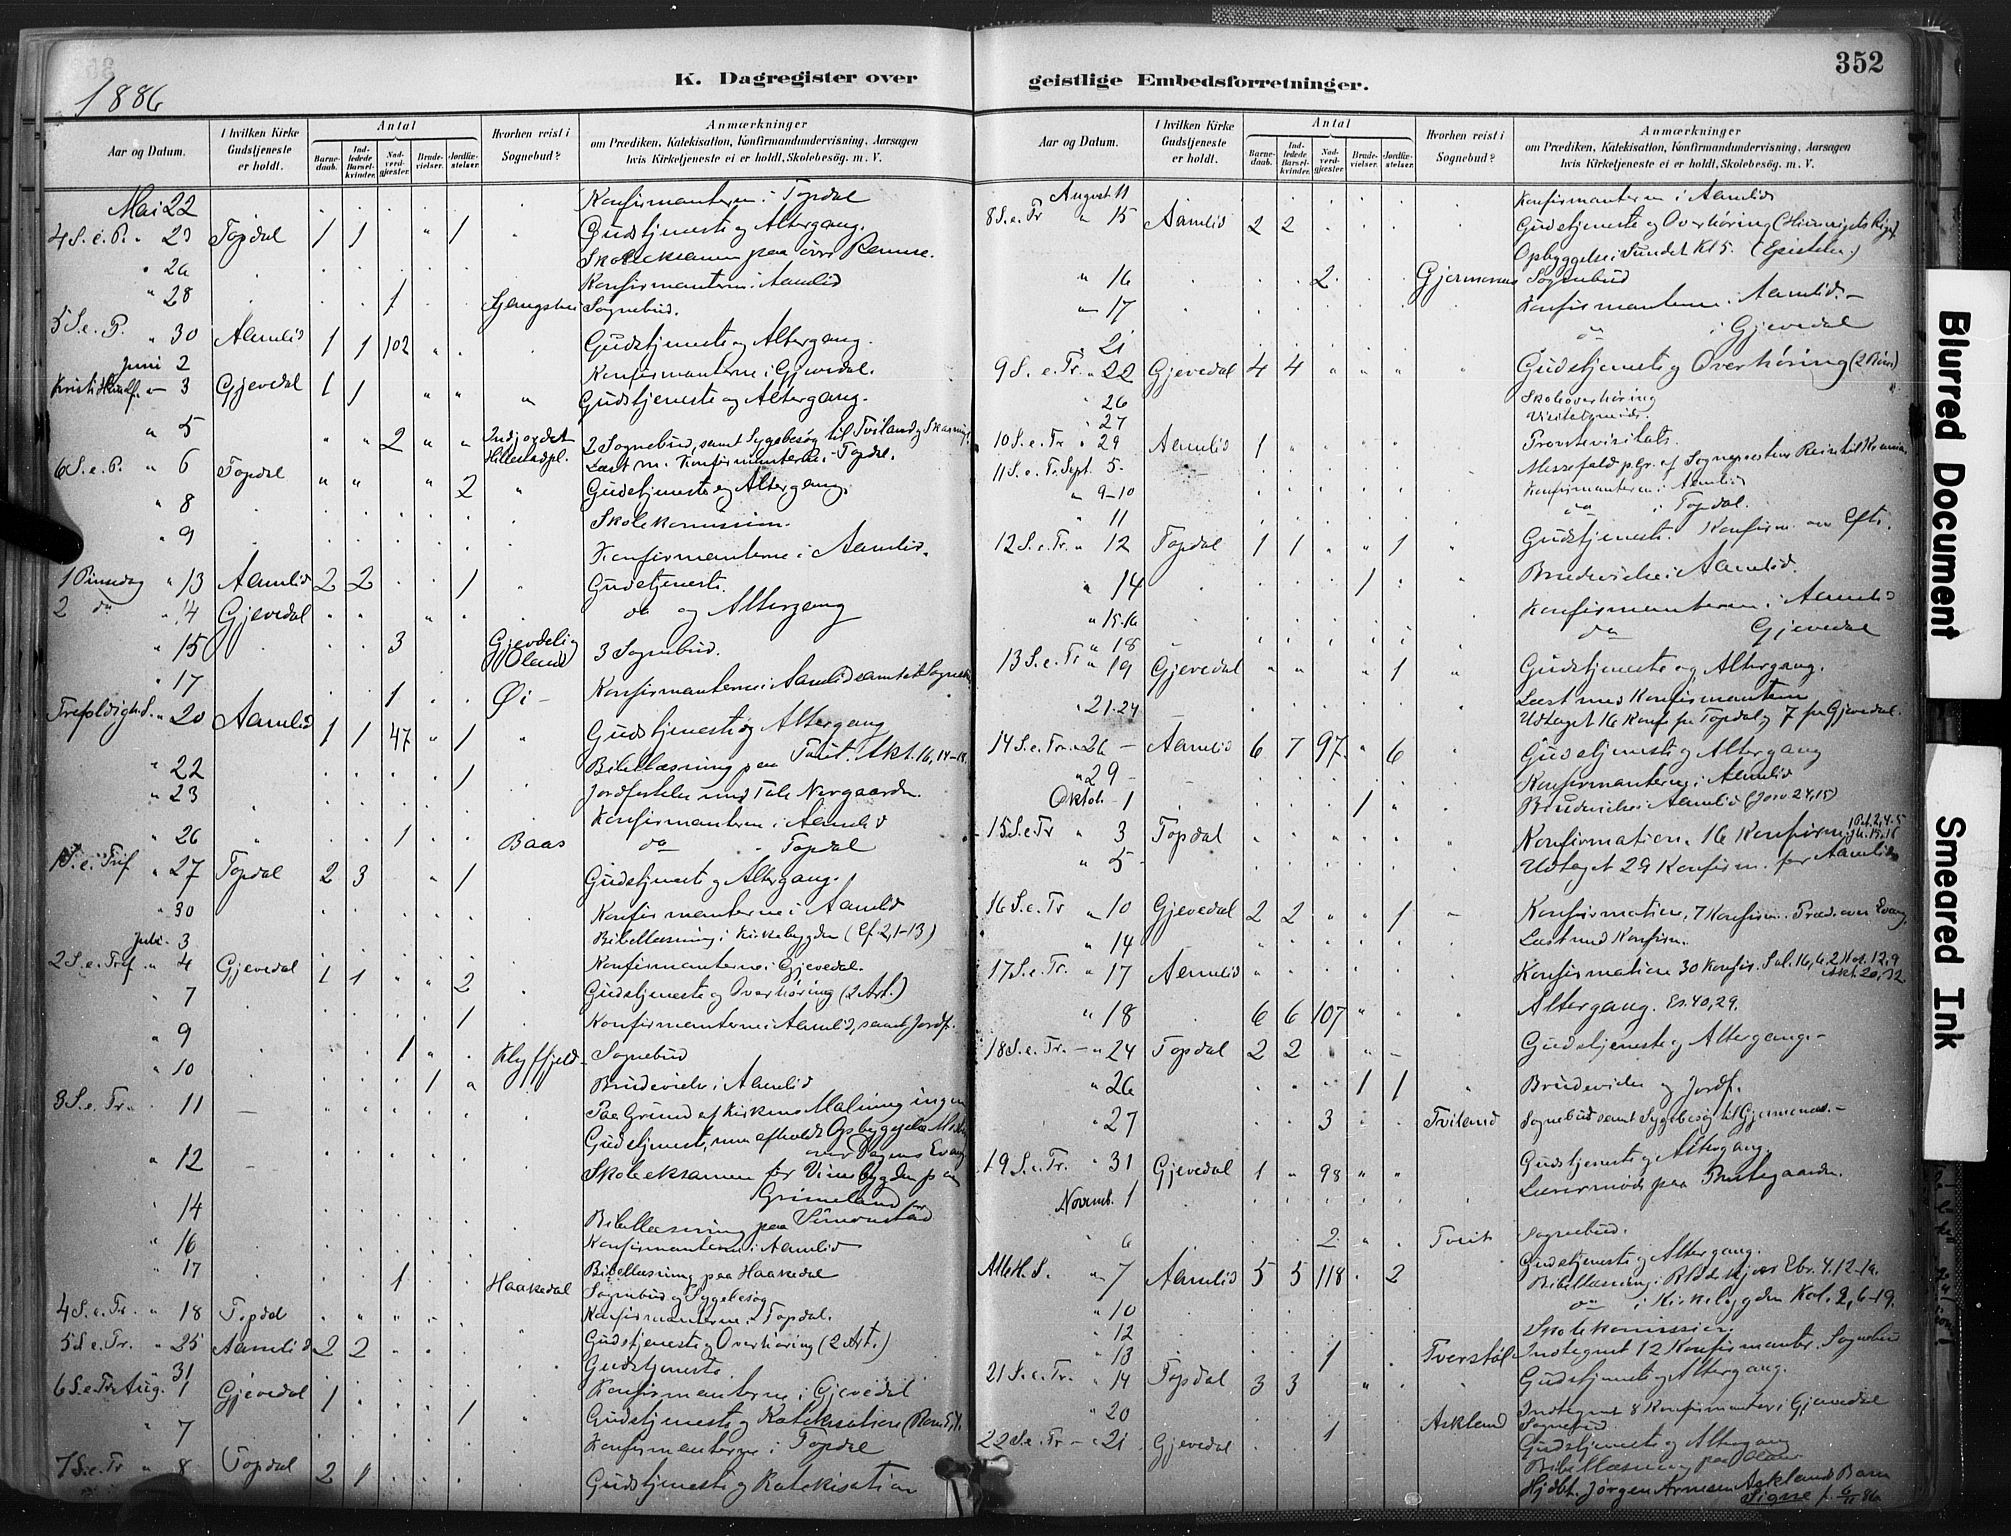 352
K. Dagregister over geistlige Embedsforretninger.
1886
Aar og Datum.
I hvilken Kirke Gudstjeneste er holdt.
Antal
Barnedaab.
Indledede Barselkvinder.
Nadverdgjester.
Brudevielser.
Jordfæstelser.
Hvorhen reist i Sognebud?
Anmærkninger
om Prædiken, Katekisation, Konfirmandundervisning, Aarsagen
hvis Kirketjeneste ei er holdt, Skolebesög. m. V.
Mai 22 Konfirmanterne i Topdal
4 S. e. P. " 23 Topdal 1 1 " 1 Gudstjeneste og Altergang.
Skoleeksamen paa övre Ramse.
" 26 Konfirmanterne i Aamlid
" 28 1 Sognebud.
5 S. e. P. " 30 Aamlid 1 1 102 " Gudstjeneste og Altergang.
Juni 2 Konfirmanterne i Gjevedal.
Kristi Himlf. " 3 Gjevedal 1 1 " " " Gudstjeneste og Altergang.
" 5 " " 2 " " Hillestadpl. 2 Sognebud, samt Sygebesøg til Tviland og
Læst m. Konfirmanterne i Topdal.
6 S. e. P. " 6 Topdal " " " 2 " Gudstjeneste og Altergang.
" 8 Skolekomission.
" 9 Konfirmanterne i Aamlid.
1 Pinsedag " 13 Aamlid 2 2 1 " Gudstjeneste.
2 do " 14 Gjevedal do og Altergang
" 15 3 Gjevdeli og Öland 3 Sognebud.
" 17 1 Øi - Konfirmanterne i Aamlid samt et Sognebud
Trefoldigh. S. " 20 Aamlid 1 1 47 " 1 " Gudstjeneste og Altergang
Bibellæsning paa Tveit. Akt. 16, 14-18.
" 22 1 Jordfæstelse
" 23 Konfirmanterne i Aamlid
" 26 1 Baas do " Topdal
1 S. e. Tref " 27 Topdal 2 3 " 1 Gudstjeneste og Altergang.
" 30 Konfirmanterne i Aamlid
Juli 3 Bibellæsning i Kirkebygden (Ef. 2, 1-13)
Konfirmanterne i Gjevedal.
2 S. e. Tref " 4 Gjevedal 1 1 " " 2 Gudstjeneste og Overhøring (2 Art.)
" 7 1 Konfirmanterne i Aamlid, samt Jordf.
" 9 1 " Sognebud
" 10 1 " Brudevielse i Aamlid
3 S. e. Tr. " 11 - Paa Grund af Kirkens Malning ingen
Gudstjeneste, men afholdt Opbyggelse
over Dagens Evang.
" 12 - Skoleeksamen for
Grimeland
" 14 Bibellæsning paa Simonstad
" 16 Konfirmanterne i Aamlid
" 17 Bibellæsning paa Haakedal
1 Haakedal Sognebud og Sygebesøg
Konfirmanterne i Topdal.
4 S. e. Tr. " 18 Topdal " " " " Gudstjeneste og Overhøring (2 Art.)
5 S. e. Tr. " 25 Aamlid 2 2 Gudstjeneste.
" 31 Konfirmanterne i Gjevedal
6 S. e. Tr. Aug. 1 Gjevedal 1 1 Gudstjeneste og Katekisation
" 7 Konfirmanterne i Topdal
7 S. e. Tr " 8 Topdal 2 1 Gudstjeneste og Katekisation
Aar og Datum.
I hvilken Kirke Gudstjeneste er holdt.
Antal
Barnedaab.
Indledede Barselkvinder.
Nadverdgjester.
Brudevielser.
Jordfæstelser.
Hvorhen reist i Sognebud?
Anmærkninger
om Prædiken, Katekisation, Konfirmandundervisning, Aarsagen
hvis Kirketjeneste ei er holdt, Skolebesög. m. V.
August 11 Konfirmanterne i Aamlid
8 S. e. Tr " 15 Aamlid 2 2 Gudstjeneste og Overhøring
Opbyggelse i Sundet Kl 5. (Epistelen)
" 16 2 Gjermenes Sognebud
" 17 Konfirmanterne i Aamlid. -
" 21 do i Gjevedal
9 S. e. Tr. " 22 Gjevedal 4 4 " " " Gudstjeneste og Overhøring (2 Bøn)
" 26 Skoleoverhøring
" 27
10 S. e. Tr " 29 Aamlid 1 " Provstevisitats.
11 S. e. Tr. Sept. 5. - Messefald p. Gr. af Sognepresten Reise til
" 9-10 Konfirmanterne i Aamlid
" 11 do i Topdal.
12 S. e. Tr. " 12 Topdal 1 1 " " 1 " Gudstjeneste.
" 14 1 Brudevielse i Aamlid.
" 15-16 Konfirmanterne i Aamlid
" 18 do Gjevedal
13 S. e. Tr " 19 Gjevedal " " 1 " Gudstjeneste og Altergang.
Læst med Konfirmanterne
" 21-24 Udtaget 16 Konf. fr Topdal og 7 fra Gjevedal.
14 S. e. Tr. " 26 - Aamlid 6 7 97 " 6 Gudstjeneste og Altergang
" 29 - Konfirmanterne i Aamlid
Oktob. 1 1 " Brudevielse i Aamlid (Josv 24,15)
15 S. e. Tr " 3 Topdal Konfirmation. 16 Konfirm.
" 5 Udtaget 29 Konfirm. for Aamlid
16 S. e. Tr " 10 Gjevedal 2 2 " " 1 Konfirmation, 7 Konfirm. Præd. over Evang.
" 14 Læst med Konfirm.
17 S. e. Tr. " 17 Aamlid Konfirmation 30 Konfir. Sal. 16, 6. 2 Kor. 12, 9
Akt. 20, 32
" 18 6 6 107 " " " Altergang. Es. 40, 29.
18 S. e. Tr. - " 24 Topdal 2 2 " - Gudstjeneste og Altergang -
" 26 1 1 " Brudevielse og Jordf.
" 27 3 Tviland Sognebud samt Sygebesøg til Gjermenes. -
19 S. e. Tr. " 31 Gjevedal 1 " 98 " " Gudstjeneste og Altergang.
Novemb. 1 Lærermøde paa Prestegaarden
" 6 2 " Tveit Sognebud.
Alle H. S. " 7 Aamlid 5 5 118 2 Gudstjeneste og Altergang.
Bibellæsning i Ebr. 4, 12-16.
" 10 do i Kirkebygden Kol. 2, 6-19.
" 12 Skolekomission
" 13 1 Tverstøl Indtegnet 12 Konfirmanter. Sognebud
21 S. e. Tr. " 14 Topdal 3 3 " Gudstjeneste og Altergang.
" 20 Indtegnet 8 Konfirmanter i Gjevedal
1 Askland Sognebud
22 S. e. Tr - " 21 Gjevedal Gudstjeneste og Altergang
Bibellæsning paa
Hjdbt. Jörgen Arnesen Asklands Barn
Signe f. 6/11 86
Blurred Document
Smeared Ink